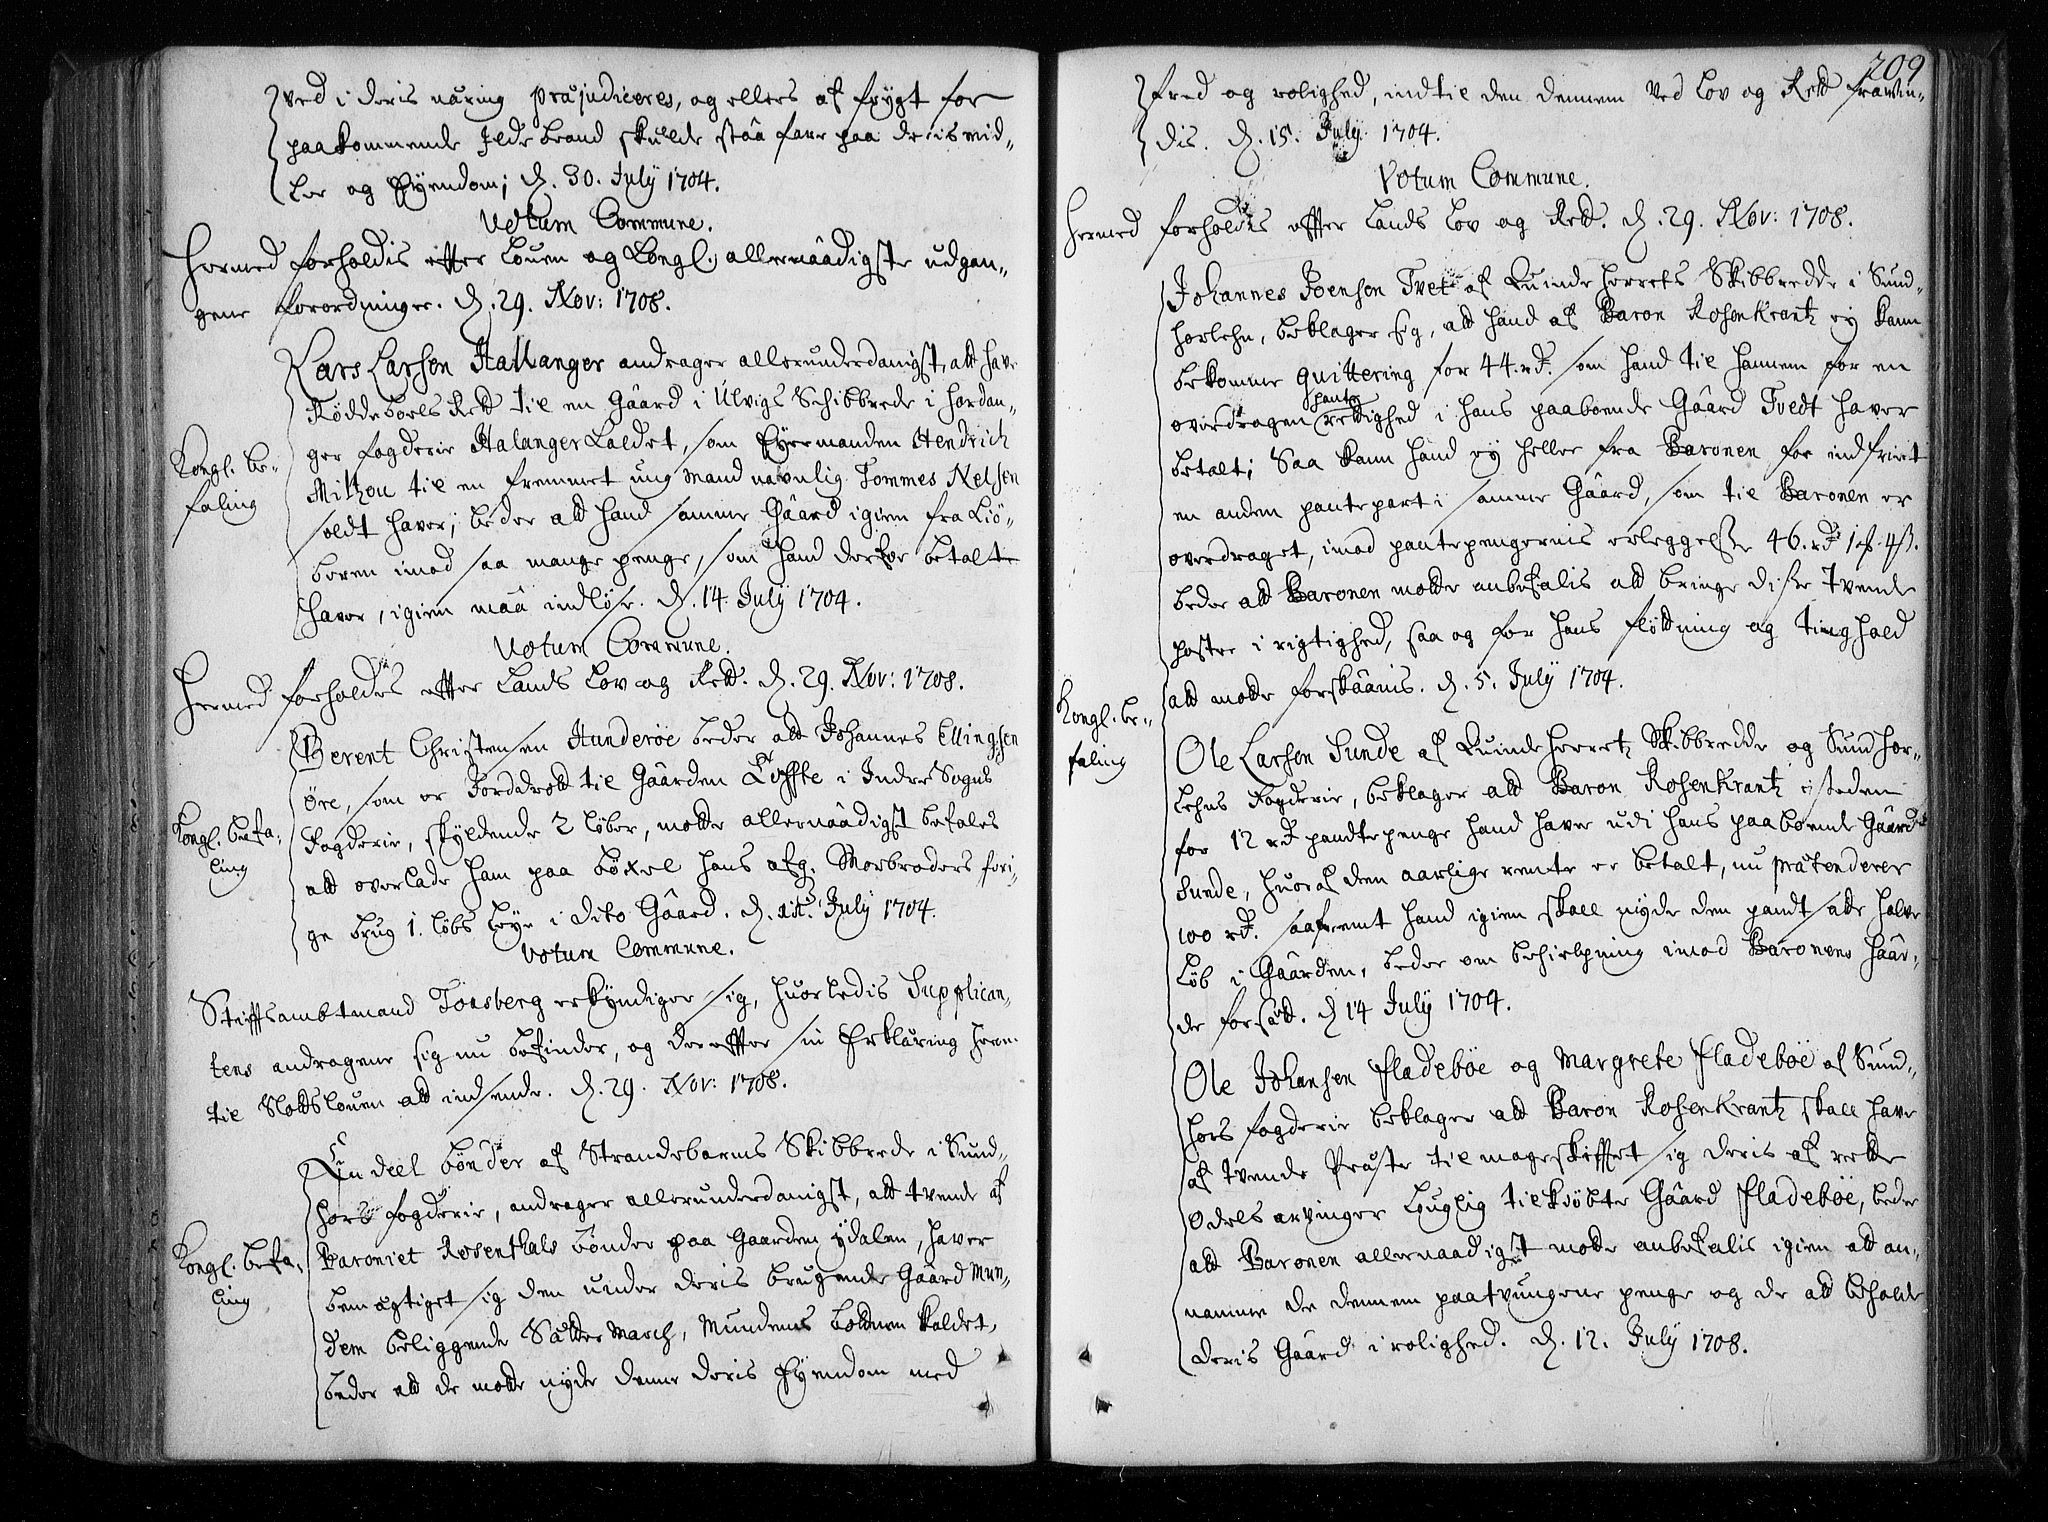 ved i deris næring præjudiceres, og ellers af frygt for
paakommende Jlde brand skulde staa fare paa deris mid-
ler og Eyendom; d. 30. July 1704.
Votum Commune.
Hermed forholdis effter Louen og Kongl. allernaadigste udgan-
gene forordninger. d. 29. Nov: 1708.
Lars Larsen Hallanger andrager allerunderdanigst, att have
Føddeboels Rett til en Gaard i Ulvigs Schibbrede i Hardan-
ger fogderie Halanger kaldet, som Eyermanden Hendrich
Kongl. be-
faling
Milhou til en fremmet ung mand navnlig Tommes Nelsen
soldt haver; beder att hand samme Gaard igien fra Kiø-
beren imod saa mange penge, som hand derfor betalt
haver, igien maa indløse. d. 14 July 1704.
Votum Commune.
Hermed forholdes effter Lands Lov og Rett. d. 29. Nov: 1708.
Berent Christensen Hunderøe beder att Johannes Ellingsen
Øre, som er Jorddrott til Gaarden Løffte i Indre Sogns
Kongl. befa-
ling
Fogderie, skyldende 2 løber, motte allernaadigst befales
att overlade ham paa bøxel hans afg. Morbroders fori-
ge brug 1. løbs leye i dito Gaard. d. July 1704.
Votum Commune.
Stiftsambtmand Tønsberg erkyndiger sig, huorledis Supplican-
tens andragene sig nu befinder, og dereffter sin Erklæring her in-
til Slottslouen att indsende. d. 29. Nov: 1708.
En deel bønder af Strandebarms Skibbrede i Sund-
hors fogderie, andrager allerunderdanigst, att tvende af
Kongl. befa-
ling
Baroniet Rosenthals bønder paa Gaarden ydalen, haver
bemægtiget sig den under deris brugende Gaard Mun-
dem beliggende Sætter March, Mundems botnen kaldet,
beder att de motte nyde denne deris Eyendom med
209
fred og rolighed, indtil den dennem ved Lov og Rett fravin-
dis. d. 15. July 1704.
Votum Commune.
Hermed forholdis effter Lands Lov og Rett. d. 29. Nov: 1708.
Johannes Joensen Tvet af Quindeherrets Skibbredde i Sund-
horlehn, beklager sig, att hand af Baron Rosenkrantz ey kann
bekomme quittering for 44. rd. som hand til hannem for en
overdragen pante rettighed i hans paaboende Gaard Tvedt haver
betalt; Saa kann hand ey heller fra Baronen for indfriet
en anden pantepart i samme Gaard, som til Baronen er
overdraget, imod pantepengernis erleggelse 46. rd 1
beder att Baronen motte anbefalis att bringe disse tvende
poster i rigtighed, saa og for hans fløttning og tinghold
att motte forskaanis. d. 5. July 1704.
Kongl. be-
faling
Ole Larsen Sunde af Quindeherretz Skibbredde og Sundhor-
lehns Fogderie, beklager att Baron Rosenkrantz i steden
for 12 rd pandtepenge hand haver udi hans paaboende Gaard
Sunde, huoraf den aarlige rente er betalt, nu prætenderer
100 rd. saafremt hand igien skall nyde den pandtsatte halve
Løb i Gaarden, beder om behielpning imod Baronens haar-
de forsæt. d 14 July 1704.
Ole Johansen Fladebøe og Margrete Fladebøe af Sund-
hors fogderie beklager att Baron Rosenkrantz skall have
af tvende Præster til mageskifftet sig deris af rette
Odels arvinger louglig tilkiøbte Gaard Fladebøe, beder
att Baronen allernaadigst motte anbefalis igien att an-
namme de dennem paatvungene penge og de att beholde
deris Gaard i rolighed. d. 12. July 1708.